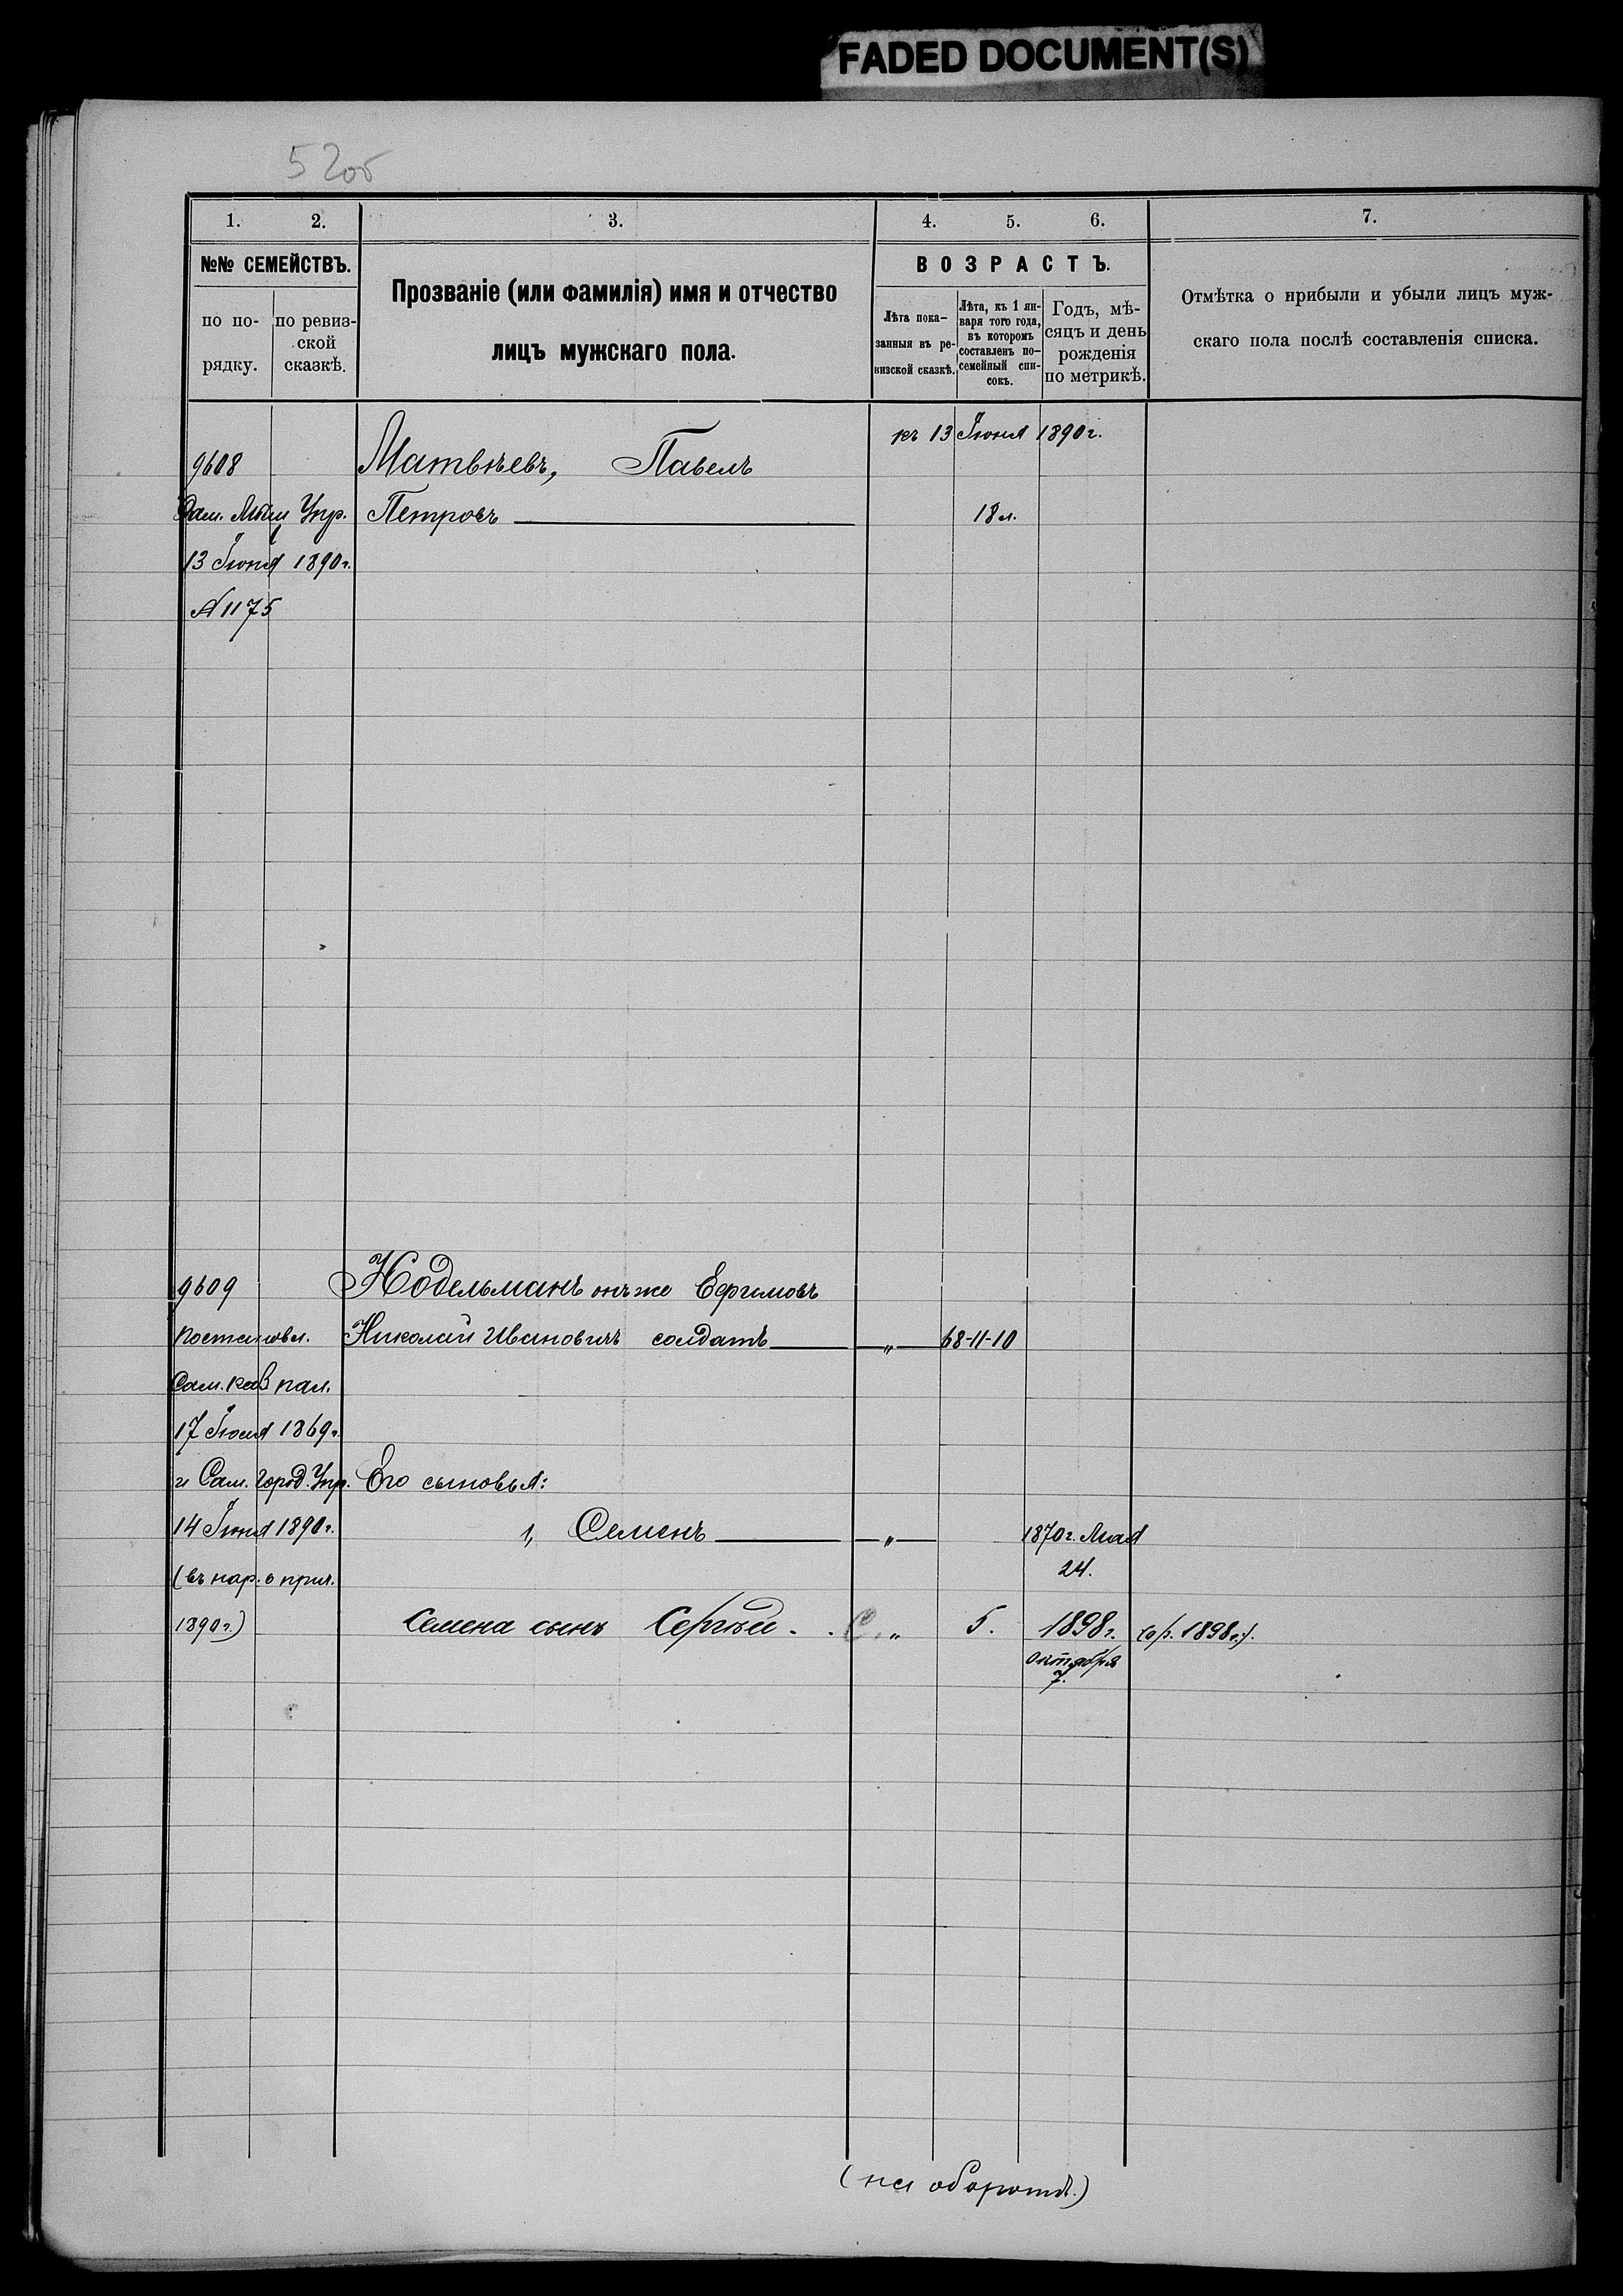 FADED DOCUMENT(S)
52об
1. 2. 3. 4. 5. 6. 7.
№№ СЕМЕЙСТВЪ.
по по-
рядку.
по ревиз-
ской
сказкѣ.
Прозваніе (или фамилія) имя и отчество
лицъ мужскаго пола.
ВОЗРАСТЪ.
Лѣта пока-
занныя въ ре-
визской сказкѣ.
Лѣта, къ 1 ян-
варя того года,
въ которомъ
составленъ по-
семейный спи-
сокъ.
Годъ, мѣ-
сяцъ и день
рожденія
по метрикѣ.
Отмѣтка о прибыли и убыли лицъ муж-
скаго пола послѣ составленія списка.
къ 13 Іюня 1890 г.
9608 Матвѣевъ, Павелъ
Сам. Мѣщ Упр. Петровъ 18 л.
13 Іюня 1890 г.
№ 1175
9609 Нодельманъ онъ же Ефимовъ
Постановл. Николай Ивановичъ солдатъ " 68-11-10
Сам. каз пал.
17 Іюля 1869 г.
и Сам. Город. Упр. Его сыновья:
14 Іюня 1890 г. 1, Семенъ " 1870 г. Мая
24.
(въ нар. о прич.
1890 г.) Семена сынъ Сергѣй. С. " 5. 1898 г. (о р. 1898 г.).
октября
7.
(на оборотѣ.)